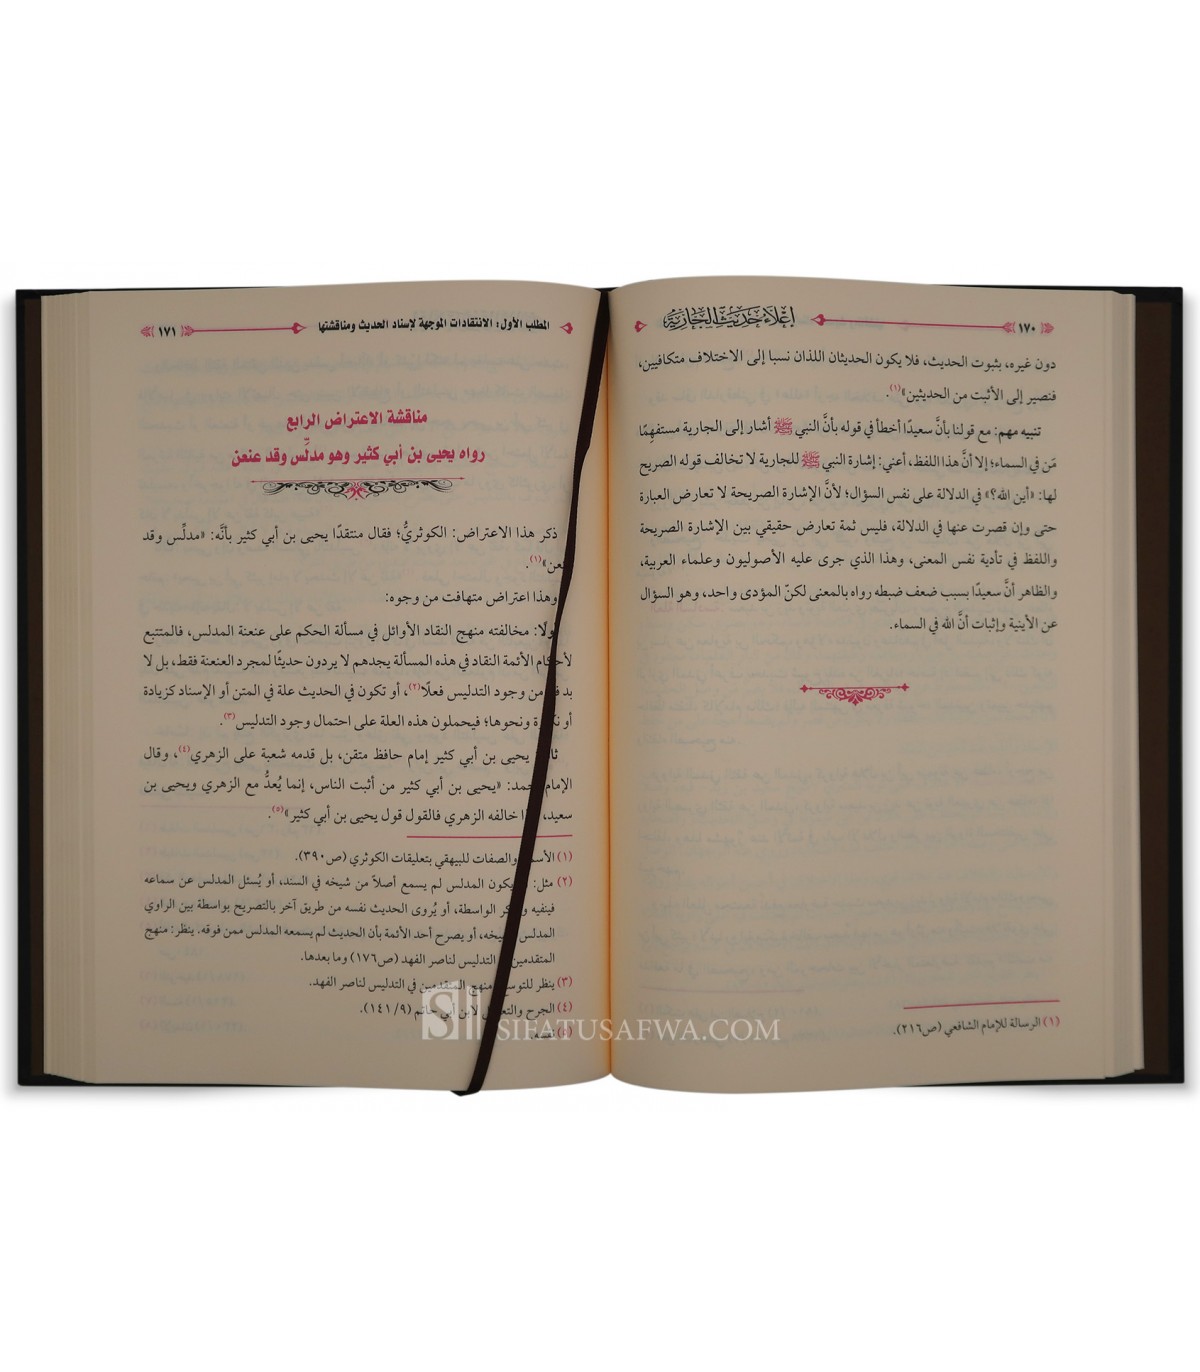 ١٧٠
إعلاء حديث الجارية
دون غيره، بثبوت الحديث، فلا يكون الحديثان اللذان نسبا إلى الاختلاف متكافيين،
فنصير إلى الأثبت من الحديثين»(١).
تنبيه مهم: مع قولنا بأنَّ سعيدًا أخطأ في قوله بأنَّ النبي ﷺ أشار إلى الجارية مستفهِمًا
مَن في السماء؛ إلا أنَّ هذا اللفظ، أعني: إشارة النبي ﷺ للجارية لا تخالف قوله الصريح
لها: «أين الله؟» في الدلالة على نفس السؤال؛ لأنَّ الإشارة الصريحة لا تعارض العبارة
حتى وإن قصرت عنها في الدلالة، فليس ثمة تعارض حقيقي بين الإشارة الصريحة
واللفظ في تأدية نفس المعنى، وهذا الذي جرى عليه الأصوليون وعلماء العربية،
والظاهر أنَّ سعيدًا بسبب ضعف ضبطه رواه بالمعنى لكنّ المؤدى واحد، وهو السؤال
عن الأينية وإثبات أنَّ الله في السماء.
(١) الرسالة للإمام الشافعي (ص٢١٦).
المطلب الأول: الانتقادات الموجهة لإسناد الحديث ومناقشتها
١٧١
مناقشة الاعتراض الرابع
رواه يحيى بن أبي كثير وهو مدلِّس وقد عنعن
ذكر هذا الاعتراض: الكوثريُّ؛ فقال منتقدًا يحيى بن أبي كثير بأنَّه: «مدلِّس وقد
عنعن»(١).
وهذا اعتراض متهافت من وجوه:
أولًا: مخالفته منهج النقاد الأوائل في مسألة الحكم على عنعنة المدلس، فالمتتبع
لأحكام الأئمة النقاد في هذه المسألة يجدهم لا يردون حديثًا لمجرد العنعنة فقط، بل لا
بد من وجود التدليس فعلًا(٢)، أو تكون في الحديث علة في المتن أو الإسناد كزيادة
أو نكارة ونحوها؛ فيحملون هذه العلة على احتمال وجود التدليس(٣).
يحيى بن أبي كثير إمام حافظ متقن، بل قدمه شعبة على الزهري(٤)، وقال
الإمام أحمد: «يحيى بن أبي كثير من أثبت الناس، إنما يُعدُّ مع الزهري ويحيى بن
سعيد، خالفه الزهري فالقول قول يحيى بن أبي كثير»(٥).
(١) الأسماء والصفات للبيهقي بتعليقات الكوثري (ص٣٩٠).
(٢) مثل: يكون المدلس لم يسمع أصلًا من شيخه في السند، أو يُسئل المدلس عن سماعه
فينفيه الواسطة، أو يُروى الحديث نفسه من طريق آخر بالتصريح بواسطة بين الراوي
المدلس وشيخه، أو يصرح أحد الأئمة بأن الحديث لم يسمعه المدلس ممن فوقه. ينظر: منهج
المتقدمين في التدليس لناصر الفهد (ص١٧٦) وما بعدها.
(٣) ينظر للتوسع: منهج المتقدمين في التدليس لناصر الفهد.
(٤) الجرح والتعديل لابن أبي حاتم (٩/ ١٤١).
(٥) نفسه.
SIFATUSAFWA.COM